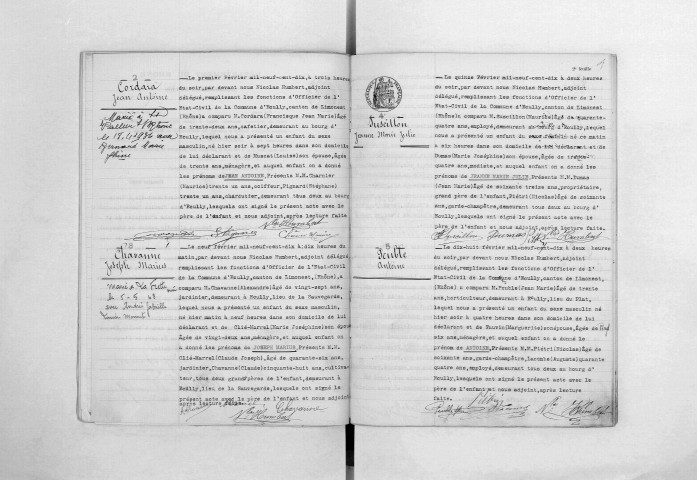 2
Cordara
Jean Antoine
Marié à
le 17-1-1936 avec
Fernand Marie
Le premier Février mil-neuf-cent-dix, à trois heures
du soir, par devant nous Nicolas Humbert, adjoint
délégué, remplissant les fonctions d'Officier de l'
Etat-Civil de la Commune d'Ecully, canton de Limonest
(Rhône) a comparu M. Cordara (Françisque Jean Marie) Âgé
de trente-deux ans, cafetier, demeurant au bourg d'
Ecully, lequel nous a présenté un enfant du sexe
masculin, né hier soir à sept heures dans son domicile
de lui déclarant et de Muscat (Louise) son épouse, âgée
de trente ans, ménagère, et auquel enfant on a donné
les prénoms de JEAN ANTOINE, Présents M.M. Charnier
(Maurice) trente ans, coiffeur, Pignard (Stéphane)
trente un ans, charcutier, demeurant tous deux au bourg
d'Ecully, lesquels ont signé le présent acte avec le
père de l'enfant et nous adjoint, après lecture faite
3
Chavanne
Joseph Marius
marié à
le 5-6-48
Le neuf Février mil-neuf-cent-dix à deux heures du
matin, par devant nous Nicolas Humbert, adjoint délégué,
remplissant les fonctions d'Officier de l'Etat-Civil
de la Commune d'Ecully, canton de Limonest (Rhône), a
comparu M. Chavanne (Alexandre) Âgé de vingt-sept ans,
jardinier, demeurant à Ecully, lieu de la Sauvegarde,
lequel nous a présenté un enfant du sexe masculin
né hier matin à neuf heures dans son domicile de lui
déclarant et de Clié-Marrel (Marie Joséphine) son épouse
Âgée de vingt-deux ans, ménagère, et auquel enfant on
a donné les prénoms de JOSEPH MARIUS, Présents M.M.
Clié-Marrel (Claude Joseph), Âgé de quarante-six ans,
jardinier, Chavanne (Claude) cinquante-huit ans, cultiva-
teur, tous deux grand-Pères de l'enfant, demeurant à
Ecully, lieu de la Sauvegarde, lesquels ont signé le
présent acte avec le père de l'enfant et nous adjoint
après lecture faite.
Chavanne
Humbert
2e feuille
4
Fusillon
Jeanne Marie Julie
Le quinze Février mil-neuf-cent-dix à deux heures
du soir, par devant nous Nicolas Humbert, adjoint
délégué, remplissant les fonctions d'Officier de l'
Etat-Civil de la Commune d'Ecully, canton de Limonest
(Rhône) a comparu M. Fusillon (Maurice) Âgé de quarante-
quatre ans, employé, demeurant au bourg d'Ecully, lequel
nous a présenté un enfant du sexe né ce matin
à six heures dans son domicile de lui déclarant et de
Dumas (Marie Joséphine) son épouse, Âgée de
quatre ans, modiste, et auquel enfant on a donné le
prénoms de JEANNE MARIE JULIE, Présents M.M. Dumas
(Jean Marie) Âgé de soixante treize ans, propriétaire,
grand père de l'enfant, Piétri (Nicolas) Âgé de soixante
ans, garde-champêtre, demeurant tous deux au bourg d'
Ecully, lesquels ont signé le présent acte avec le
père de l'enfant et nous adjoint, après lecture faite.
Fusillon Dumas Humbert
5
Peuble
Antoine
Le dix-huit Février mil-neuf-cent-dix à deux heures
du soir, par devant nous Nicolas Humbert, adjoint délégué,
remplissant les fonctions d'Officier de l'
Etat-Civil de la Commune d'Ecully, canton de Limonest,
(Rhône) a comparu M. Peuble (Jean Marie) Âgé de trente
ans, horticulteur, demeurant à Ecully, lieu du Plat,
lequel nous a présenté un enfant du sexe masculin né
hier soir à quatre heures dans son domicile de lui
déclarant et de Fauvin (Marguerite) son épouse, Âgée de vingt
six ans, ménagère, et auquel enfant on a donné le
prénom de ANTOINE, Présents M.M. Piétri (Nicolas) Âgé de
soixante ans, garde-champêtre, Lacombe (Auguste) quarante
quatre ans, employé, demeurant tous deux au bourg d'
Ecully, lesquels ont signé le présent acte avec le
père de l'enfant et nous adjoint, après lecture
faite.
Humbert